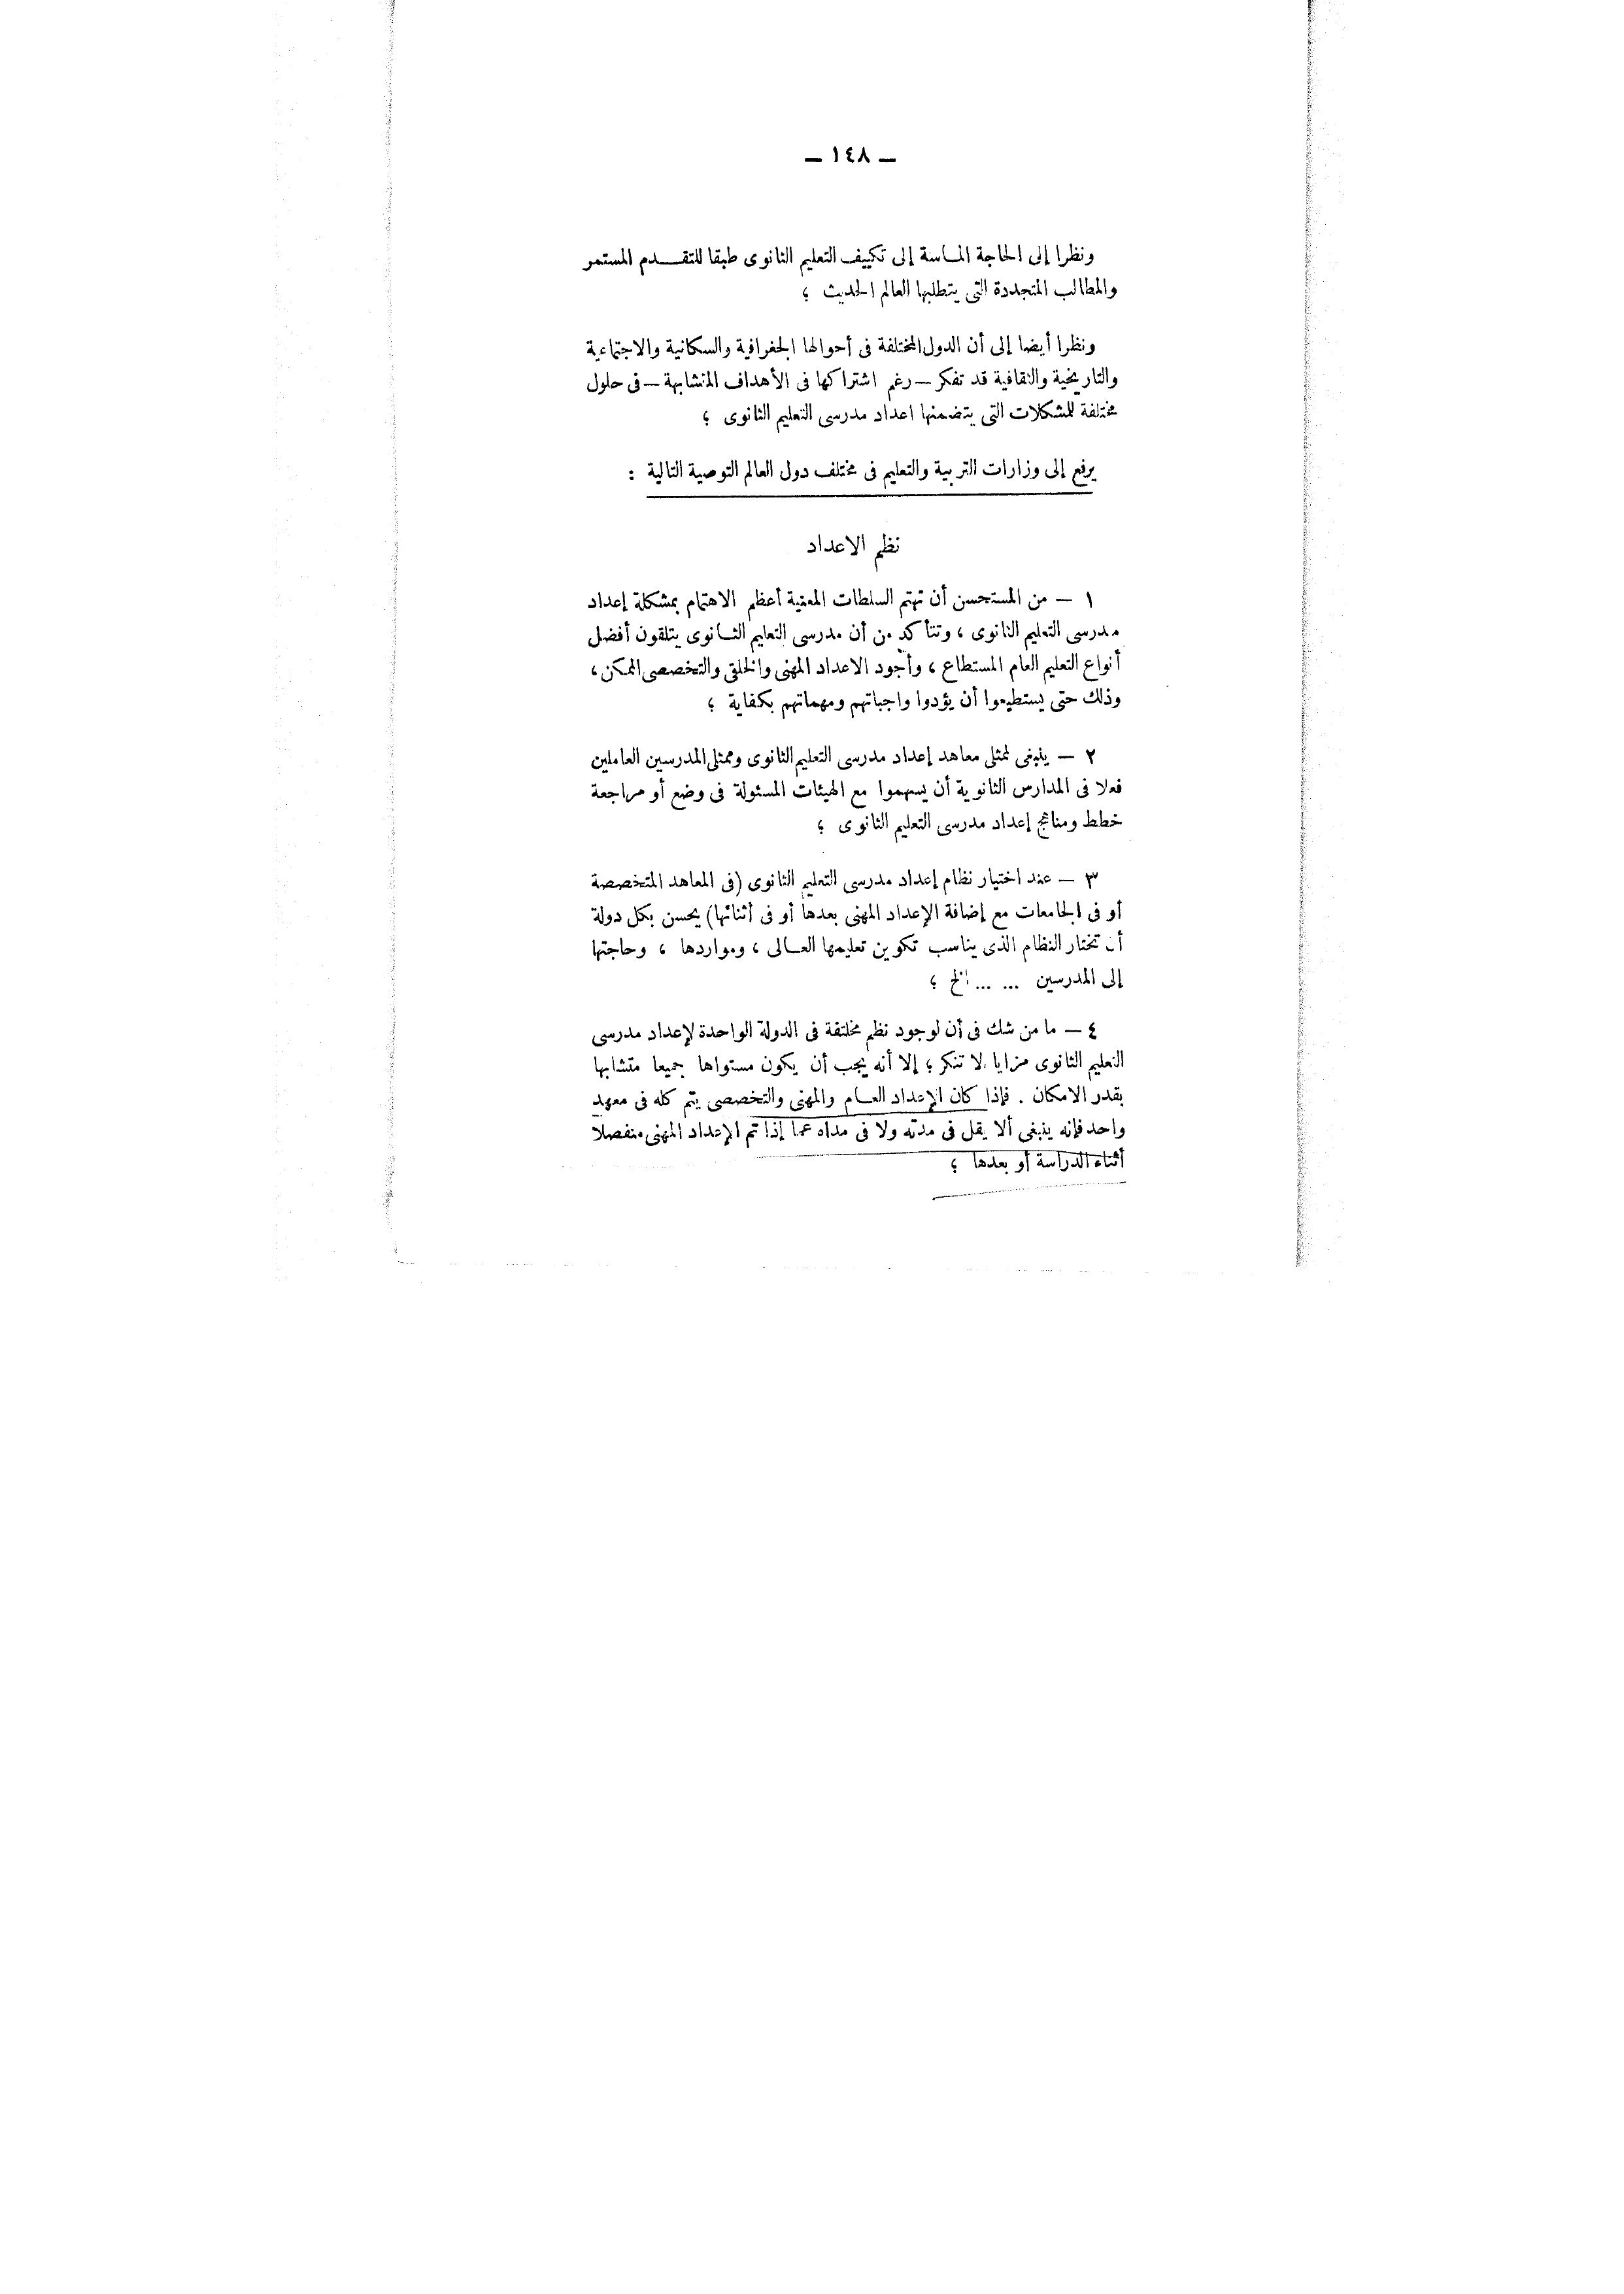 — ١٤٨ —
ونظرا إلى الحاجة الماسة إلى تكييف التعليم الثانوى طبقا للتقدم المستمر
والمطالب المتجددة التى يتطلبها العالم الحديث ؛
ونظرا أيضا إلى أن الدول المختلفة فى أحوالها الجغرافية والسكانية والاجتماعية
والتاريخية والثقافية قد تفكر — رغم اشتراكها فى الأهداف المتشابهة — فى حلول
مختلفة للمشكلات التى يتضمنها اعداد مدرسى التعليم الثانوى ؛
يرفع إلى وزارات التربية والتعليم فى مختلف دول العالم التوصية التالية :
نظم الاعداد
١ — من المستحسن أن تهتم السلطات المعنية أعظم الاهتمام بمشكلة إعداد
مدرسى التعليم الثانوى ، وتتأكد من أن مدرسى التعليم الثانوى يتلقون أفضل
أنواع التعليم العام المستطاع ، وأجود الاعداد المهنى والخلقى والتخصصى الممكن ،
وذلك حتى يستطيعوا أن يؤدوا واجباتهم ومهماتهم بكفاية ؛
٢ — ينبغى لممثلى معاهد إعداد مدرسى التعليم الثانوى وممثلى المدرسين العاملين
فعلا فى المدارس الثانوية أن يسهموا مع الهيئات المسئولة فى وضع أو مراجعة
خطط ومناهج إعداد مدرسى التعليم الثانوى ؛
٣ — عند اختيار نظام إعداد مدرسى التعليم الثانوى (فى المعاهد المتخصصة
أو فى الجامعات مع إضافة الإعداد المهنى بعدها أو فى أثنائها) يحسن بكل دولة
أن تختار النظام الذى يناسب تكوين تعليمها العالى ، ومواردها ، وحاجتها
إلى المدرسين ... ... الخ ؛
٤ — ما من شك فى أن لوجود نظم مختلفة فى الدولة الواحدة لإعداد مدرسى
التعليم الثانوى مزايا لا تنكر ؛ إلا أنه يجب أن يكون مستواها جميعا متشابها
بقدر الامكان . فإذا كان الإعداد العام والمهنى والتخصصى يتم كله فى معهد
واحد فإنه ينبغى ألا يقل فى مدته ولا فى مداه عما إذا تم الإعداد المهنى منفصلا
أثناء الدراسة أو بعدها ؛